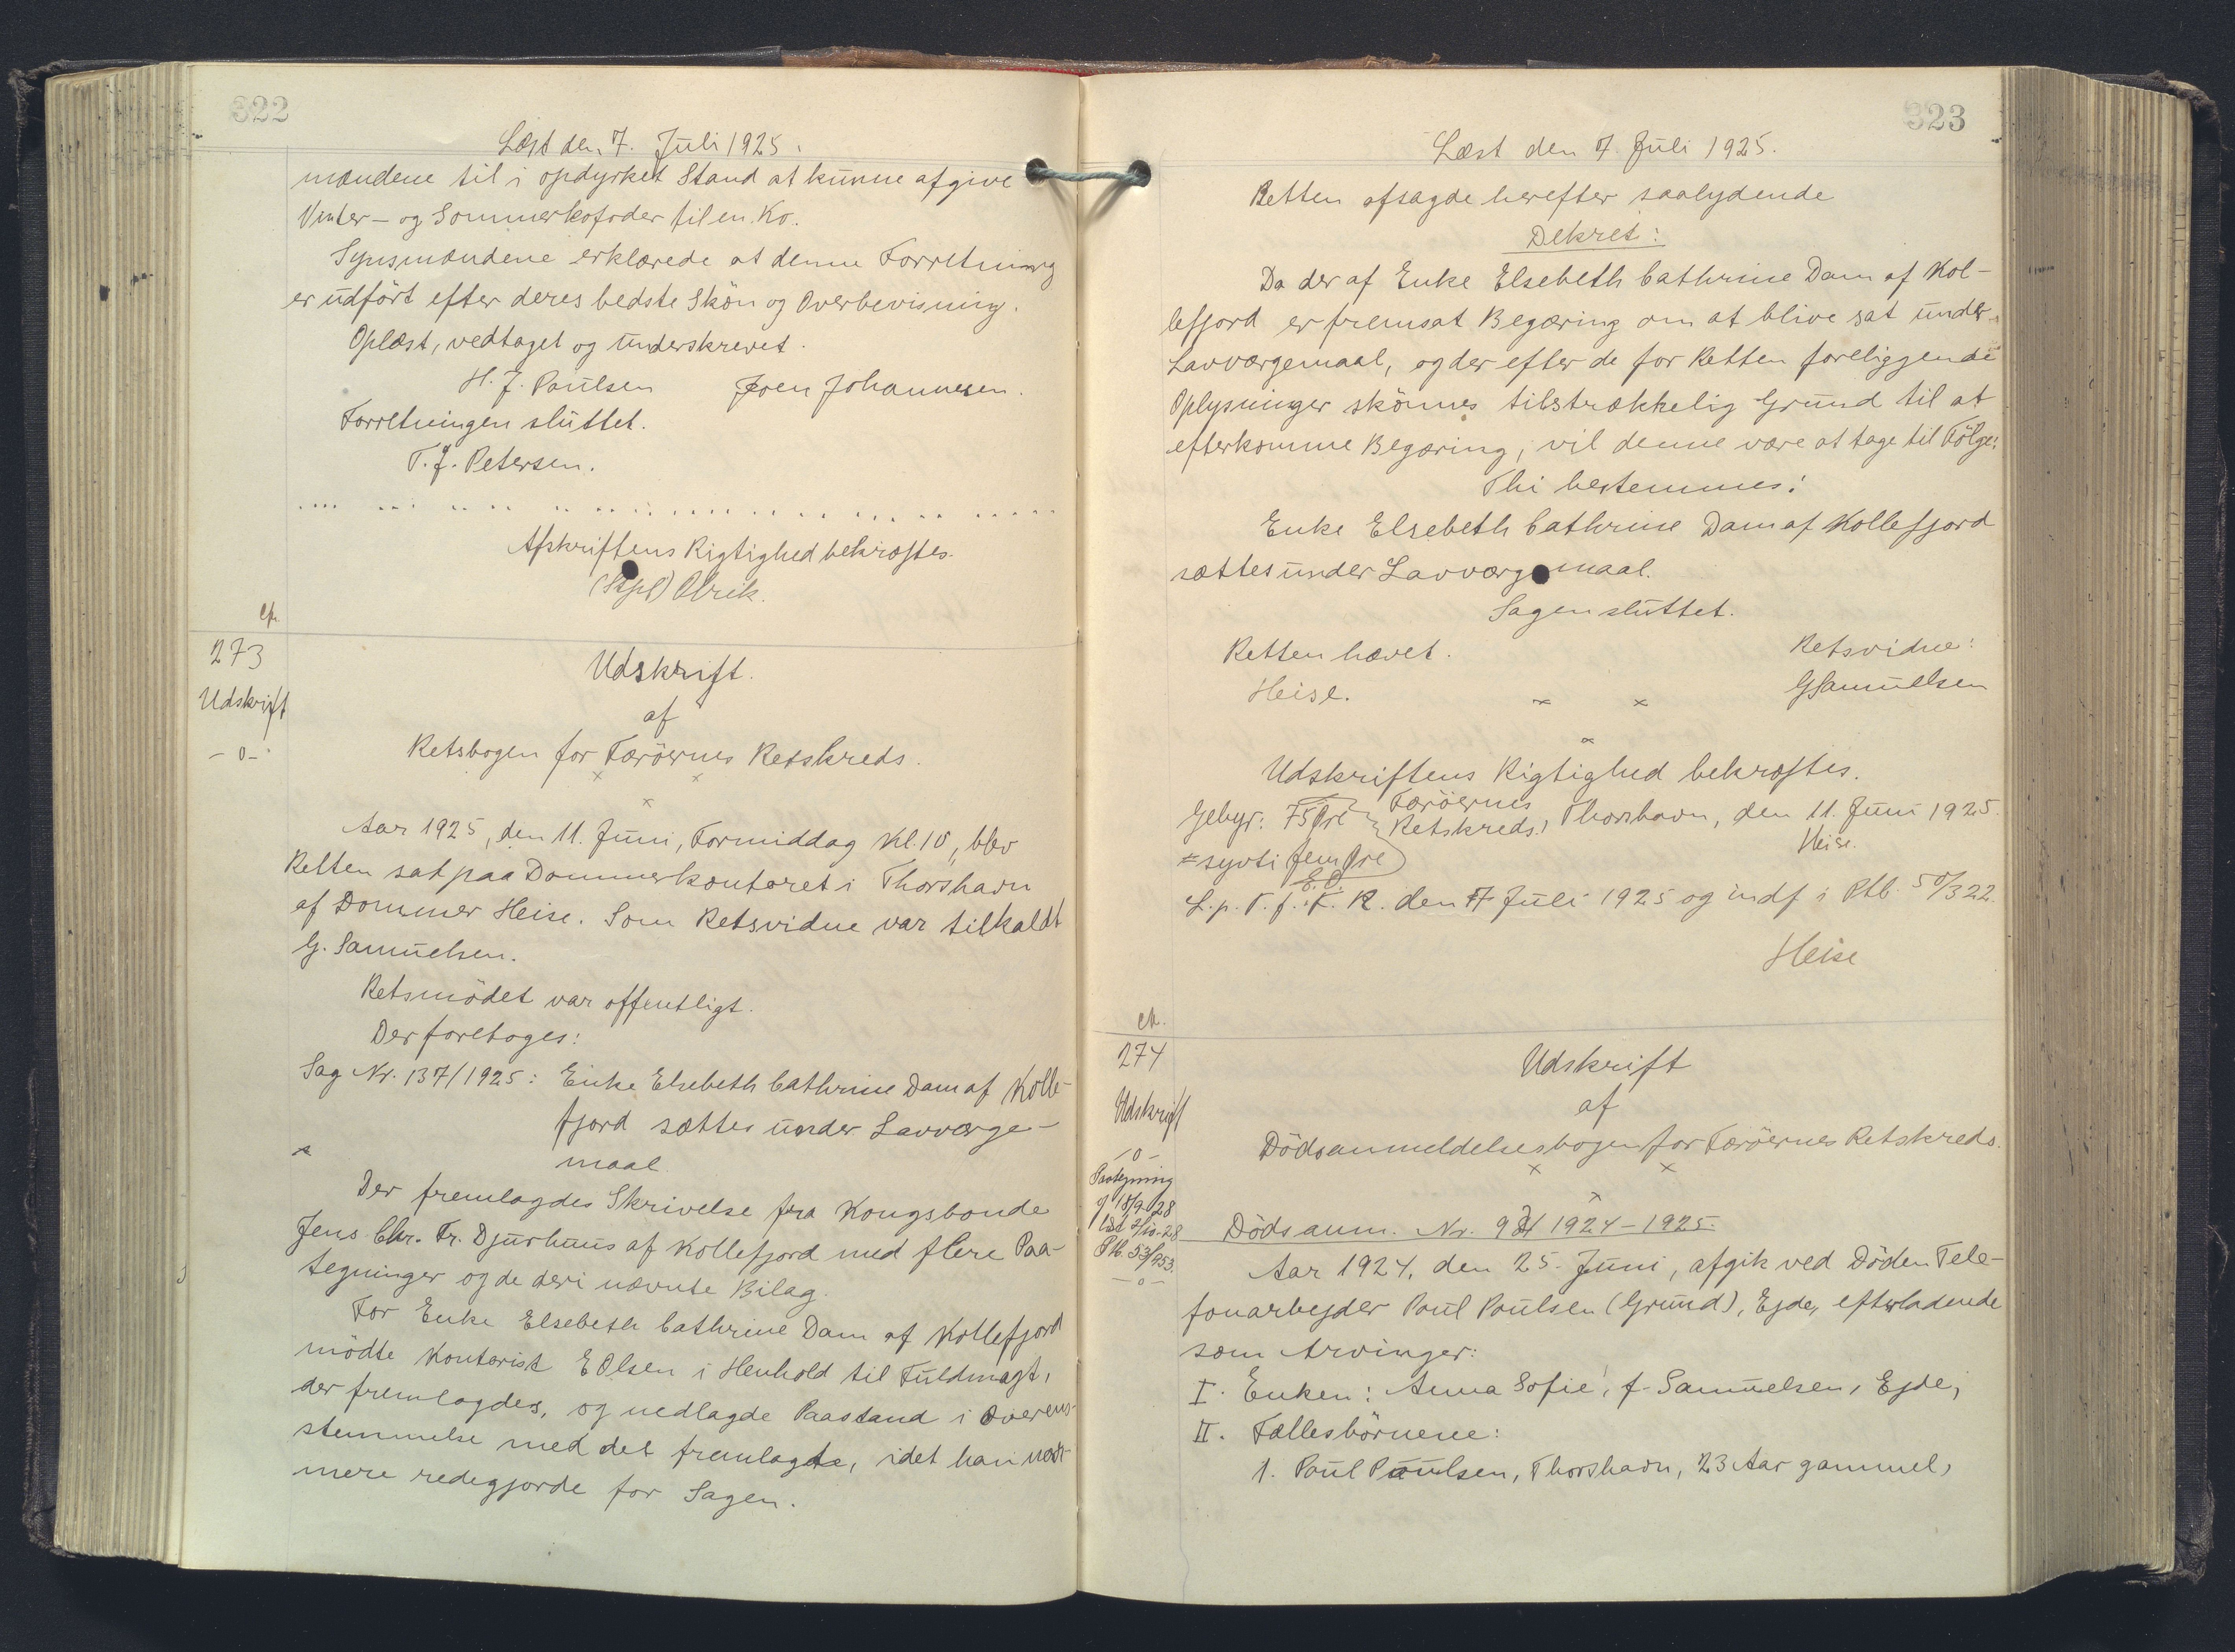 322
Læst den 7. Juli 1925.
mændene til i opdyrket Stand at kunne afgive
Vinter- og Sommerkofoder til en Ko.
Synsmændene erklærede at denne Forretning
er udført efter deres bedste Skön og Overbevisning.
Oplæst, vedtaget og underskrevet.
H. J. Paulsen Joen Johannesen.
Forretningen sluttet.
T. J. Petersen.
Afskriftens Rigtighed bekræftes.
(Sign) Olrik.
273
Udskrift
-o-
Udskrift.
af
Retsbogen for Færöernes Retskreds.
Aar 1925, den 11. Juni, Formiddag Kl. 10, blev
Retten sat paa Dommerkontoret i Thorshavn
af Dommer Heise. Som Retsvidne var tilkaldt
G. Samuelsen.
Retsmödet var offentligt.
Der foretoges:
Sag Nr. 137/1925: Enke Elsebeth Cathrine Dam af Kolle-
fjord sættes under Lavværge-
maal.
Der fremlagdes Skrivelse fra Kongsbonde
Jens Chr. Fr. Djurhuus af Kollefjord med flere Paa-
tegninger og de deri nævnte Bilag.
For Enke Elsebeth Cathrine Dam af Kollefjord
mödte Kontorist E Olsen i Henhold til Fuldmagt,
der fremlagdes, og nedlagde Paastand i Overens-
stemmelse med det fremlagte, idet han nær-
mere redegjorde for Sagen.
323
Læst den 7. Juli 1925.
Retten afsagde herefter saalydende
Dekret:
Da der af Enke Elsebeth Cathrine Dam af Kol-
lefjord er fremsat Begæring om at blive sat under
Lavværgemaal, og der efter de for Retten foreliggende
Oplysninger skönnes tilstrækkelig Grund til at
efterkomme Begæring, vil denne være at tage til Fölge:
Thi bestemmes:
Enke Elsebeth Cathrine Dam af Kollefjord
sættes under Lavværgemaal.
Sagen sluttet.
Retten hævet. Retsvidne:
Heise. GSamuelsen
Udskriftens Rigtighed bekræftes.
Gebyr: 75 Øre Færöernes Retskreds, Thorshavn, den 11. Juni 1925.
= syvti fem Øre Heise.
E.O.
L. p. T. f. F. R. den 7 Juli 1925 og indf i Ptb. 50/322.
Heise
274
Udskrift
-o-
Paategning
af 18/9 28
læst 2/10-28
Ptb 53/253.
-o-
Udskrift
af
Dödsanmeldelsesbogen for Færöernes Retskreds.
Dödsanm. Nr. 92/1924-1925.
Aar 1924, den 25. Juni, afgik ved Döden Tele-
fonarbejder Poul Poulsen (Grund), Ejde, efterladende
som Arvinger:
I. Enken: Anna Sofie, f. Samuelsen, Ejde,
II. Fællesbörnene:
1. Poul Paulsen, Thorshavn, 23 Aar gammel,